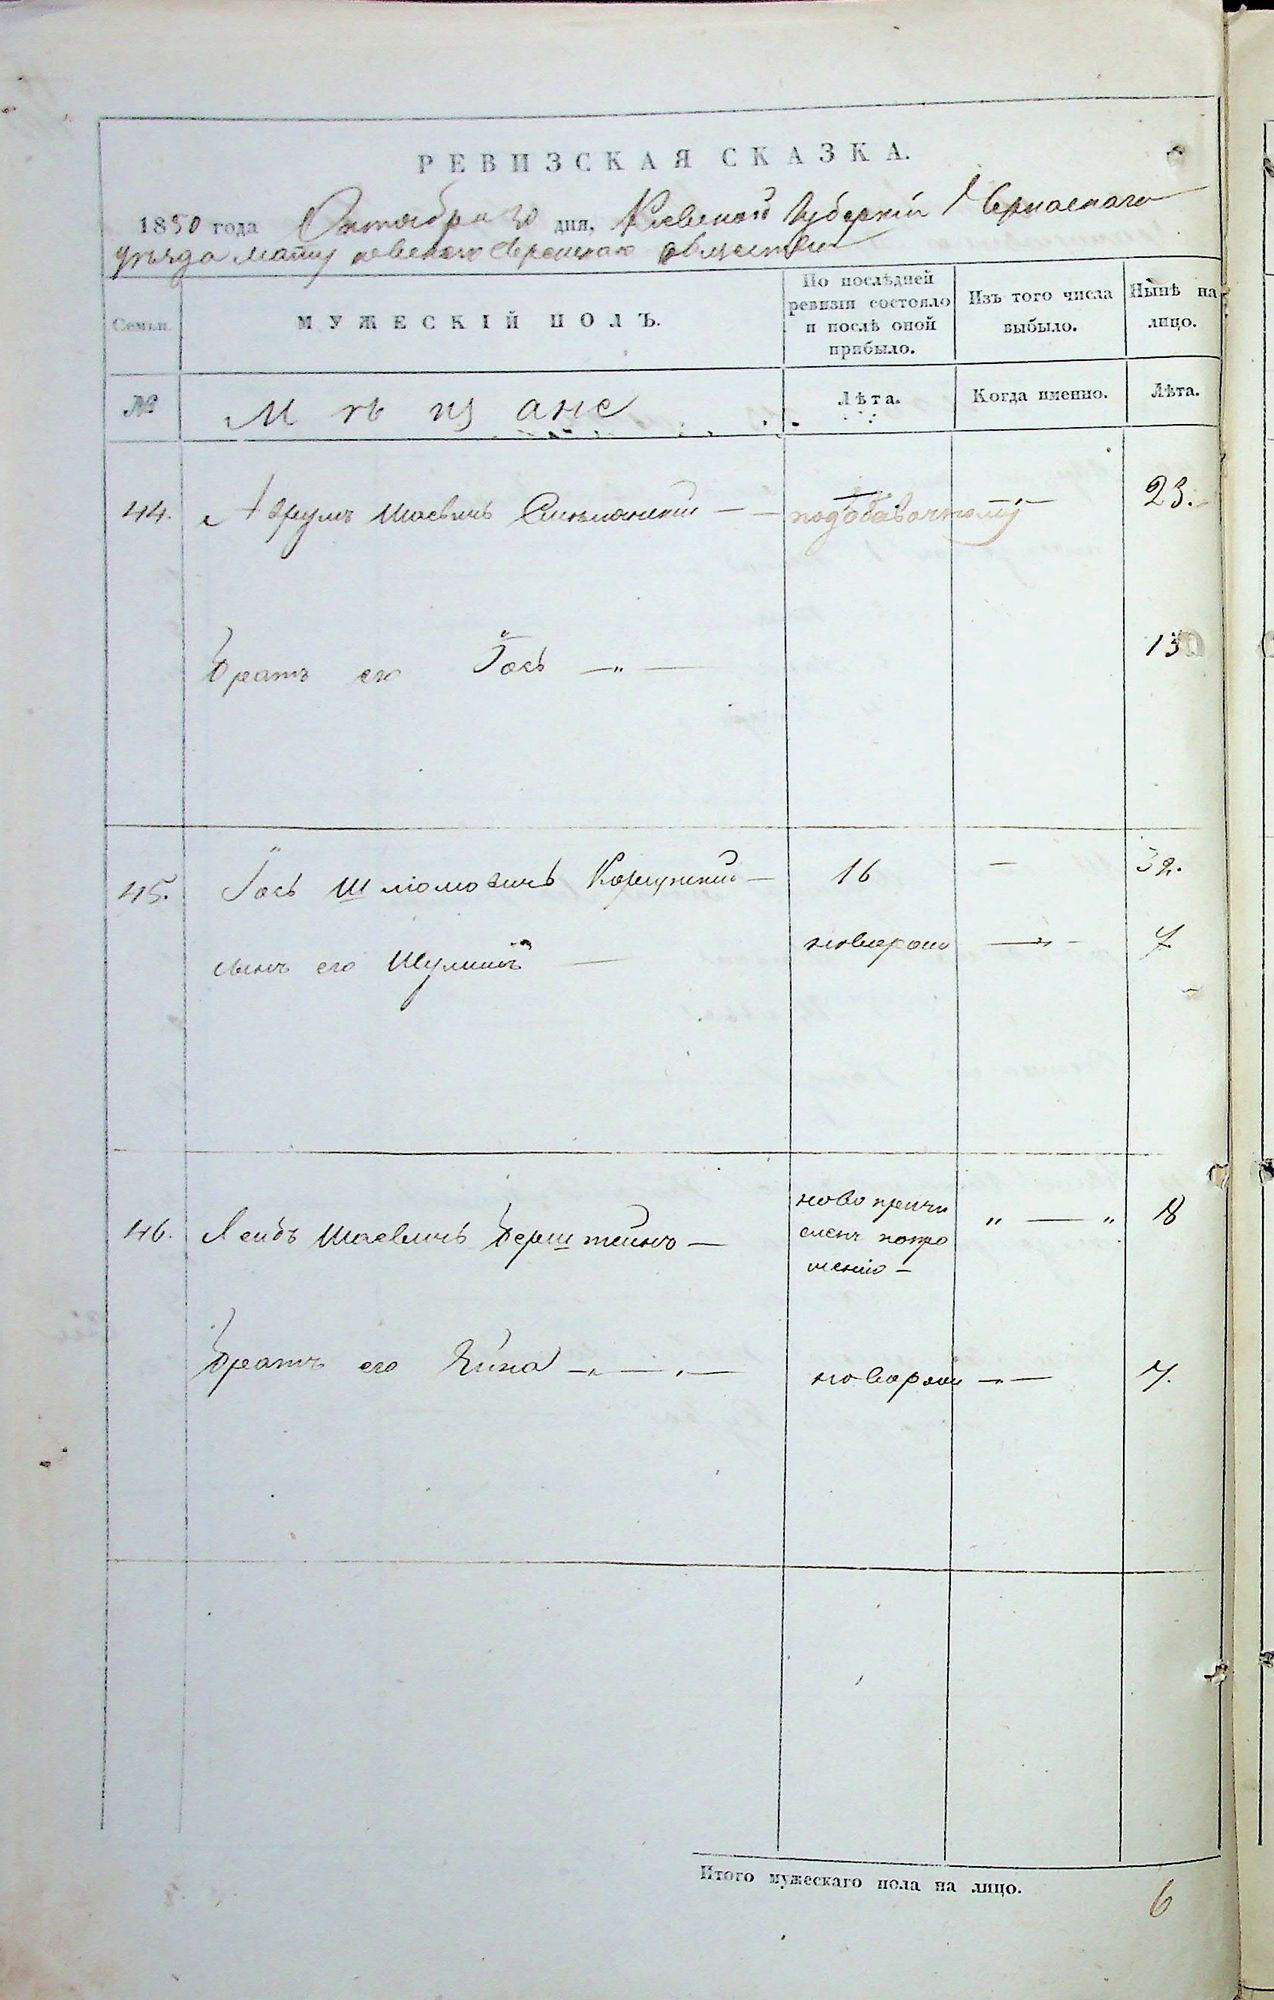 РЕВИЗСКАЯ СКАЗКА.
1850 года Октября 30 дня, Киевской Губернiи Черкаскаго
уѣзда Матусовскаго Еврейскаго общества
Семьи.
МУЖЕСКIЙ ПОЛЪ.
По послѣдней ревизiи состояло и послѣ оной прибыло.
Изъ того числа выбыло.
Нынѣ на лицо.
№
Мѣщане
Лѣта.
Когда именно.
Лѣта.
44. Аврумъ Шаевичъ — подобавочному — 23.
братъ его Iось — 13
45. Iось Шлiомовичъ — 16 — 32.
сынъ его — новорож — 7
46. Лейбъ Шаевичъ Берштейнъ —
новопричи
сленъ попро
шенiю —
„ — „ 18
братъ его — новорож — 7.
Итого мужескаго пола на лицо. 6